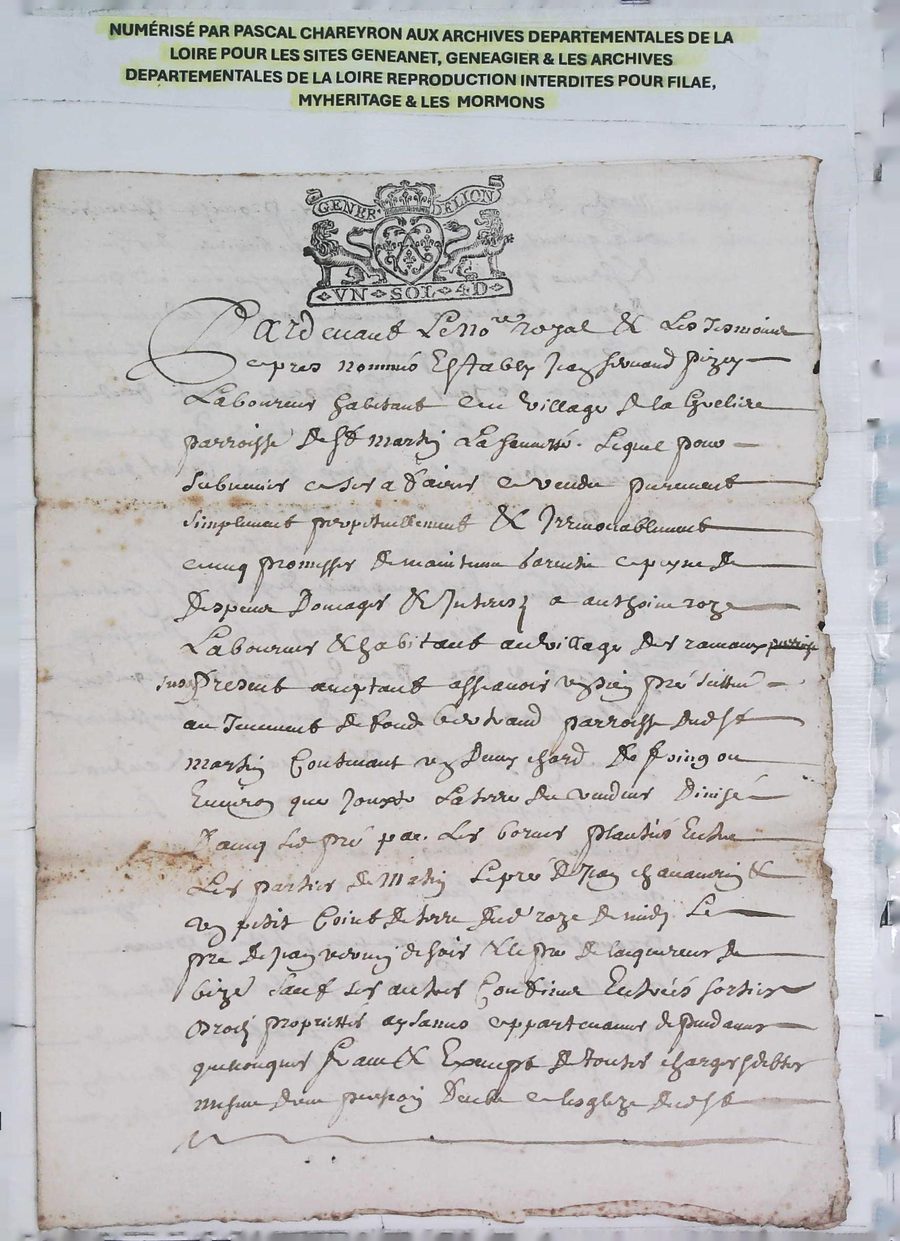 NUMÉRISÉ PAR PASCAL CHAREYRON AUX ARCHIVES DEPARTEMENTALES DE LA
LOIRE POUR LES SITES GENEANET, GENEAGIER & LES ARCHIVES
DEPARTEMENTALES DE LA LOIRE REPRODUCTION INTERDITES POUR FILAE,
MYHERITAGE & LES MORMONS
GENER DE LION
VN SOL 4D
Pardevant Le no.re royal & Les Tesmoins
apres nommés Estably Jean
Laboureur habitant au village de la
parroisse de St martin La Sauveté. Lequel pour
subvenir a ses afaires a vendu purement
simplement perpetuellement & Irrevocablement
avecq promesse de maintenir garentir a peyne de
Despens Domages & Interestz a anthoine roze
Laboureur & habitant au village des ramaux
present acceptant assavoir ung sien pré scittué
au Tenement de parroisse dud St
martin Contenant ung Deux chard De foing ou
Environ que Jouxte La terre du vendeur Divisé
Davecq led pré par Les bornes plantées Entre
Les parties de Matin Le pré de Jean &
ung petit Coint de terre dud roze de midy Le
pre de Jean de soir & le pre de lacquereur de
bize sauf ses autres Confins Entrées sorties
Droitz proprietés aysances appartenances dependances
quelconques franc & Exempt de toutes charges debtes
mesme dune pension deube a lesglize dud St